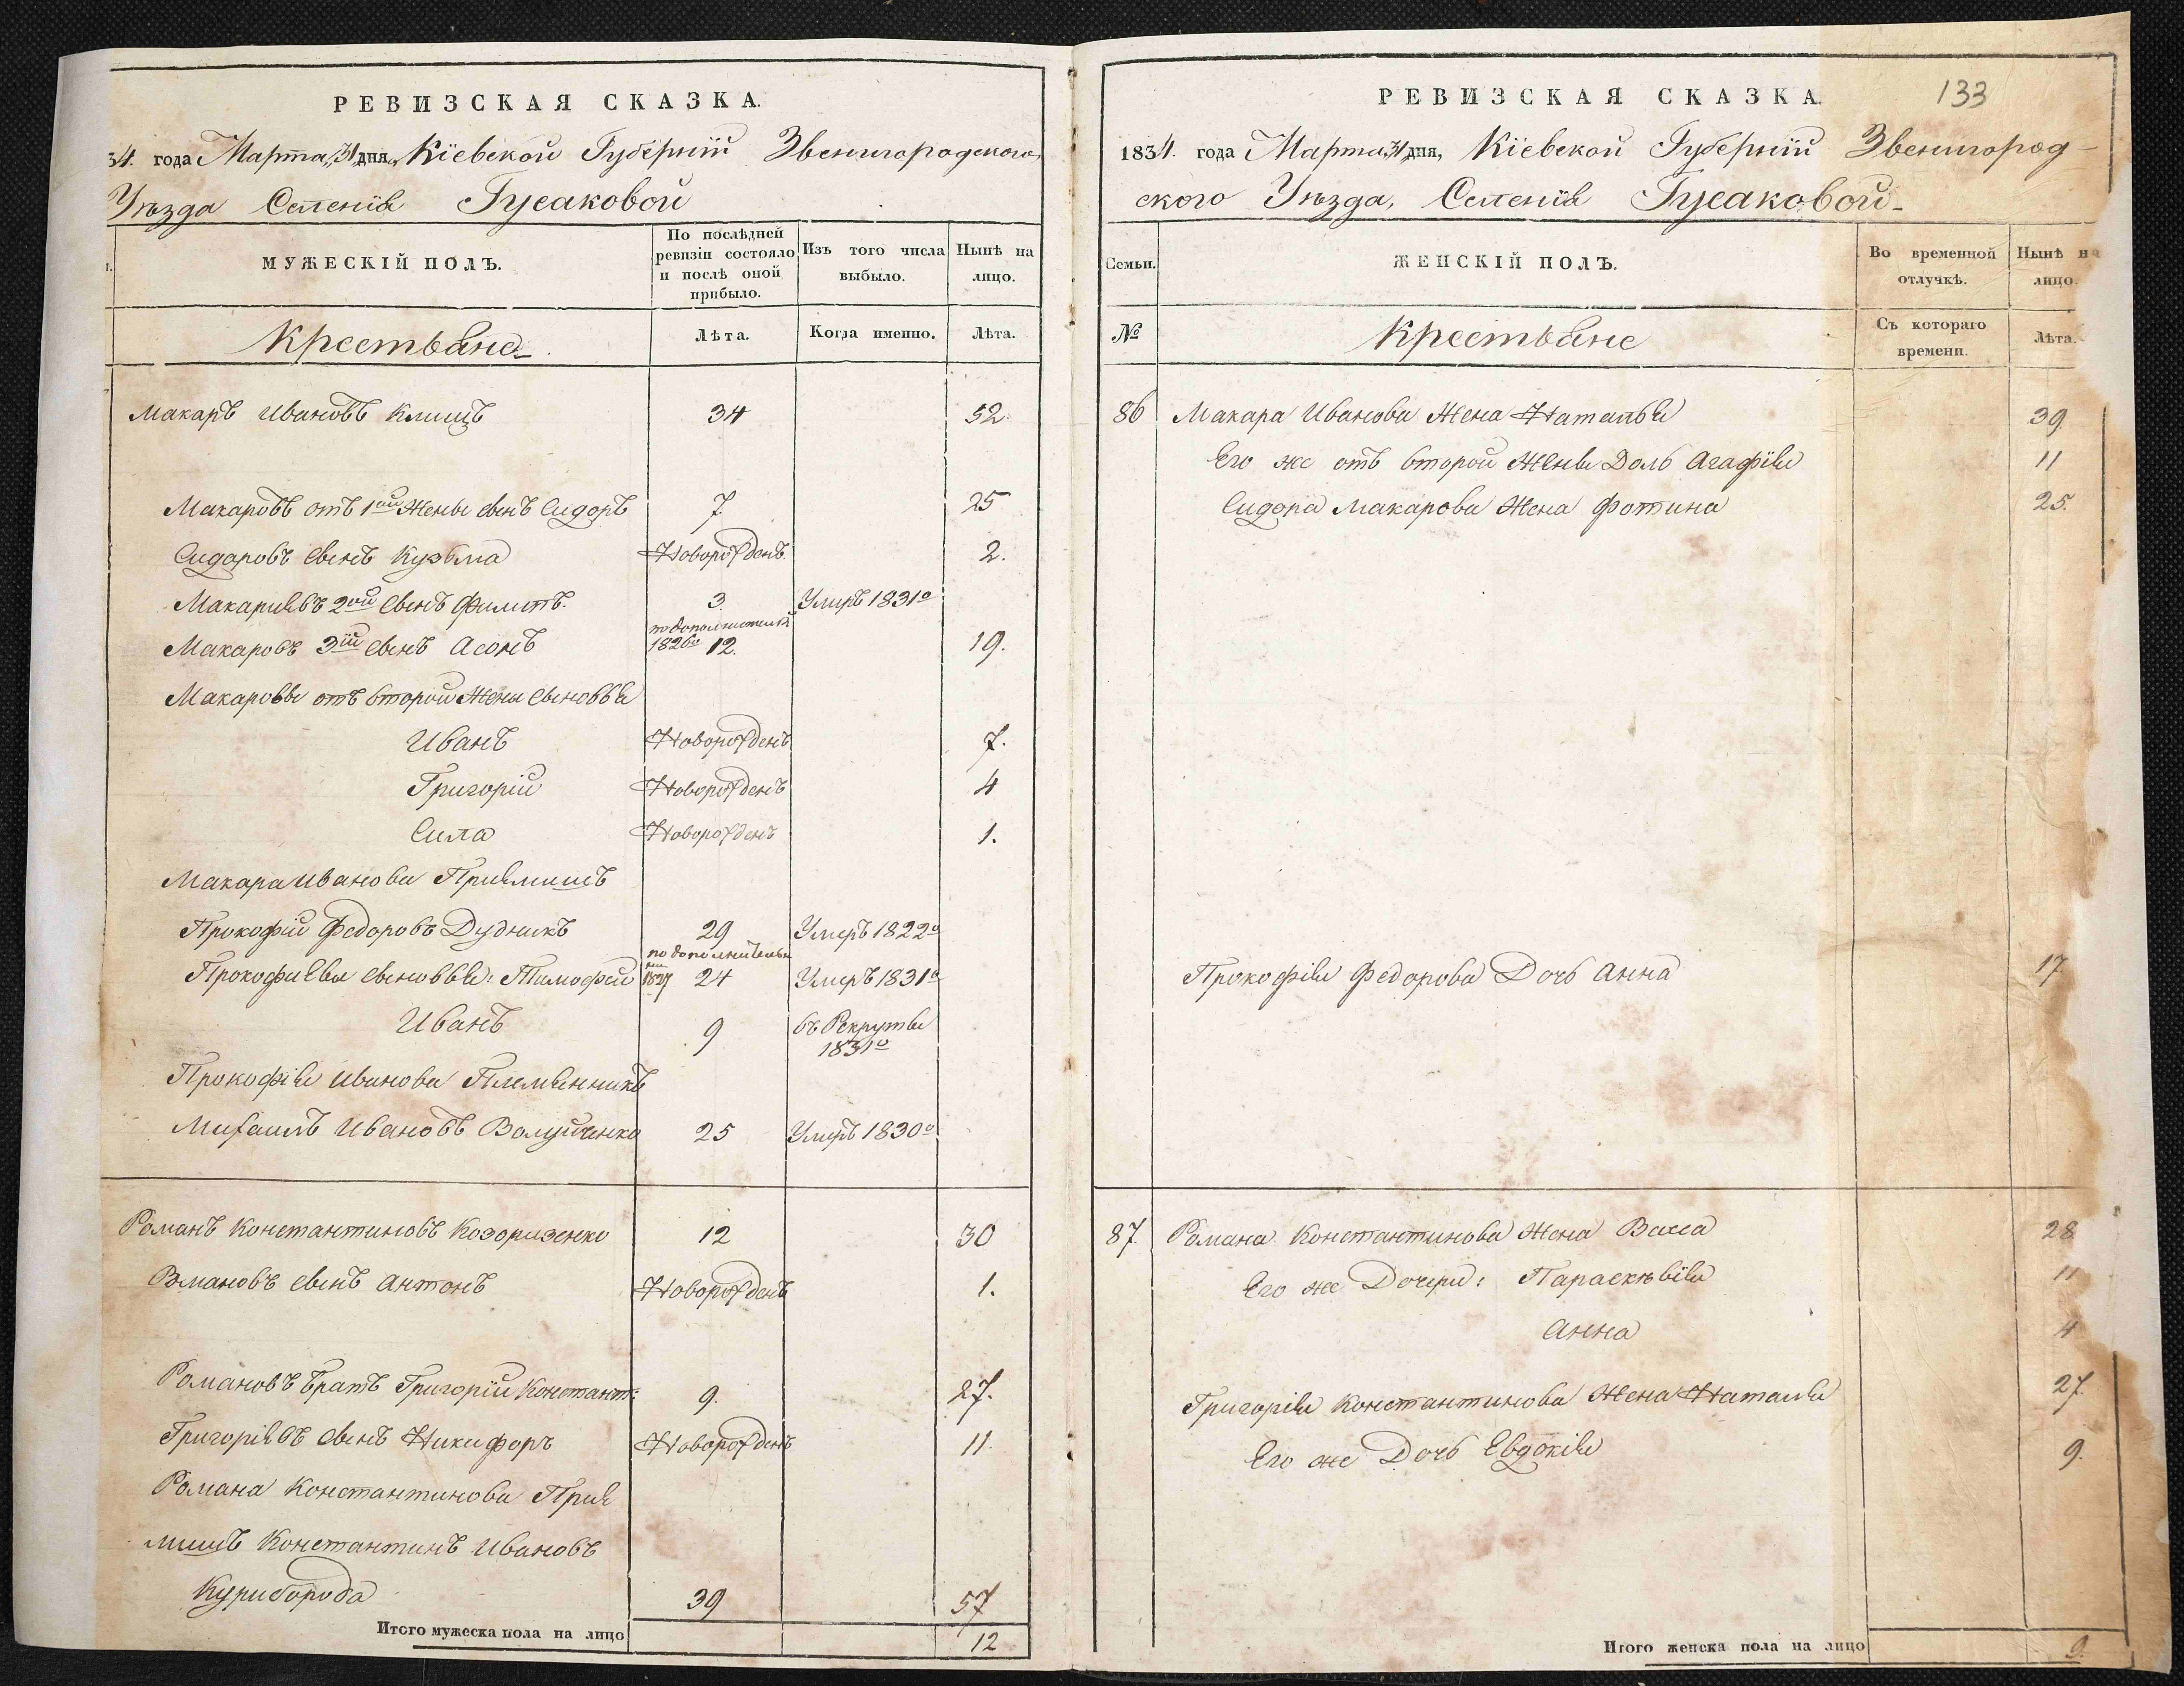 РЕВИЗСКАЯ СКАЗКА.
34. года Марта 31 дня, Кіевской Губерніи Звенигородскаго
Уѣзда Селенія Гусаковой
МУЖЕСКІЙ ПОЛЪ.
По послѣдней ревизіи состояло и послѣ оной прибыло.
Изъ того числа выбыло.
Нынѣ на лицо.
Крестьяне
Лѣта.
Когда именно.
Лѣта.
Макаръ Ивановъ Клищъ 34 52
Макаровъ отъ 1ой Жены сынъ Сидоръ 7 25
Сидаровъ сынъ Кузьма Новорожденъ 2.
Макаріевъ 2ой сынъ Филипъ. 3. Умиръ 1831о
Макаровъ 3ій сынъ Асонъ по дополнительной 1826го 12. 19.
Макаровы отъ второй Жены сыновья
Иванъ Новорожденъ 7.
Григорій Новорожденъ 4
Сила Новорожденъ 1.
Макара Иванова Пріямишъ
Прокофій Федоровъ Дудникъ 29 Умеръ 1822о
Прокофиева сыновья: Тимофей по дополнительной 1827 24 Умеръ 1831о
Иванъ 9 въ Рекруты 1831о
Прокофія Иванова Племянникъ
Михаилъ Ивановъ 25 Умеръ 1830о
Романъ Константиновъ Козоризенко 12 30
Романовъ сынъ Антонъ Новорожденъ 1.
Романовъ братъ Григорій Констант: 9. 27.
Григоріявъ сынъ Никифоръ Новорожденъ 11.
Романа Константинова Прія
мишъ Константинъ Ивановъ
Куриборода 39 57
Итого мужеска пола на лицо 12
РЕВИЗСКАЯ СКАЗКА.
133
1834. года Марта 31 дня, Кіевской Губерніи Звенигород-
ского Уѣзда, Селенія Гусаковой
Семьи.
ЖЕНСКІЙ ПОЛЪ.
Во временной отлучкѣ.
Нынѣ на лицо.
№
Крестьяне
Съ котораго времени.
Лѣта.
86 Макара Иванова Жена Наталья 39.
Его же отъ второй Жены Дочь Агафія 11
Сидора Макарова Жена Фотина 25.
Прокофія Федорова Дочь Анна 17.
87. Романа Константинова Жена Васса 28
Его же Дочери: Параскѣвія 11
Анна 4
Григорія Константинова Жена Наталья 27.
Его же Дочь Евдокія 9.
Итого женска пола на лицо 9.